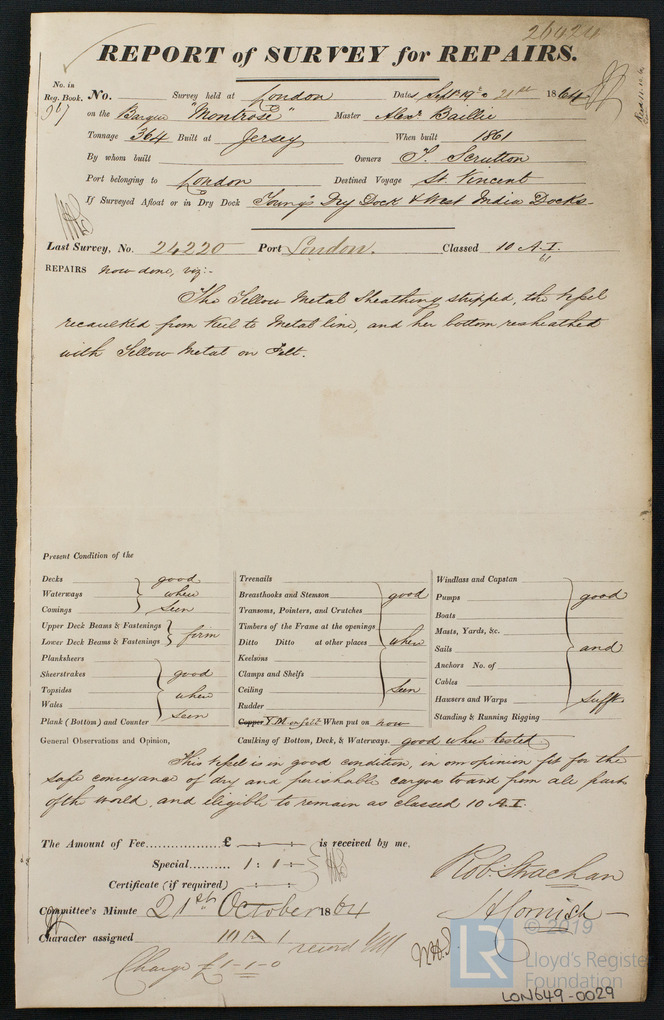 26424
REPORT of SURVEY for REPAIRS.
No. in
Reg. Book.
No. Survey held at London Date, Sept 19th & 21st 1864
on the Barque "Montrose" Master Alexr. Baillie
Tonnage 364 Built at Jersey When built 1861
By whom built Owners T. Scrutton
Port belonging to London Destined Voyage St. Vincent
If Surveyed Afloat or in Dry Dock Young's Dry Dock & West India Docks
Last Survey, No. 24220 Port London. Classed 10 A.I.
61
REPAIRS now done, viz:-
The Yellow Metal Sheathing stripped, the vessel
recaulked from Keel to Metal line, and her bottom resheathed
with Yellow Metal on Felt.
Present Condition of the
Decks good
Waterways when
Comings seen
Upper Deck Beams & Fastenings
Lower Deck Beams & Fastenings firm
Planksheers
Sheerstrakes good
Topsides when
Wales
Plank (Bottom) and Counter seen
Treenails
Breasthooks and Stemson good
Transoms, Pointers, and Crutches
Timbers of the Frame at the openings
Ditto Ditto at other places when
Keelsons
Clamps and Shelfs
Ceiling seen
Rudder
Copper Y.M. on felt When put on now
Windlass and Capstan
Pumps good
Boats
Masts, Yards, &c.
Sails and
Anchors No. of
Cables
Hawsers and Warps Sufft
Standing & Running Rigging
General Observations and Opinion, Caulking of Bottom, Deck, & Waterways. good when tested
This vessel is in good condition, in our opinion fit for the
safe conveyance of dry and perishable cargoes to and from all parts
of the world, and eligible to remain as classed 10 A.I.
The Amount of Fee £ is received by me.
Special 1 : 1 :
Certificate (if required)
Rob Strachan
H Cornish
Committee's Minute 21st October 1864
Character assigned 10 A 1
record
Charge £1-1-0
© 2019
LR
Lloyd's Register
Foundation
LON649-0029